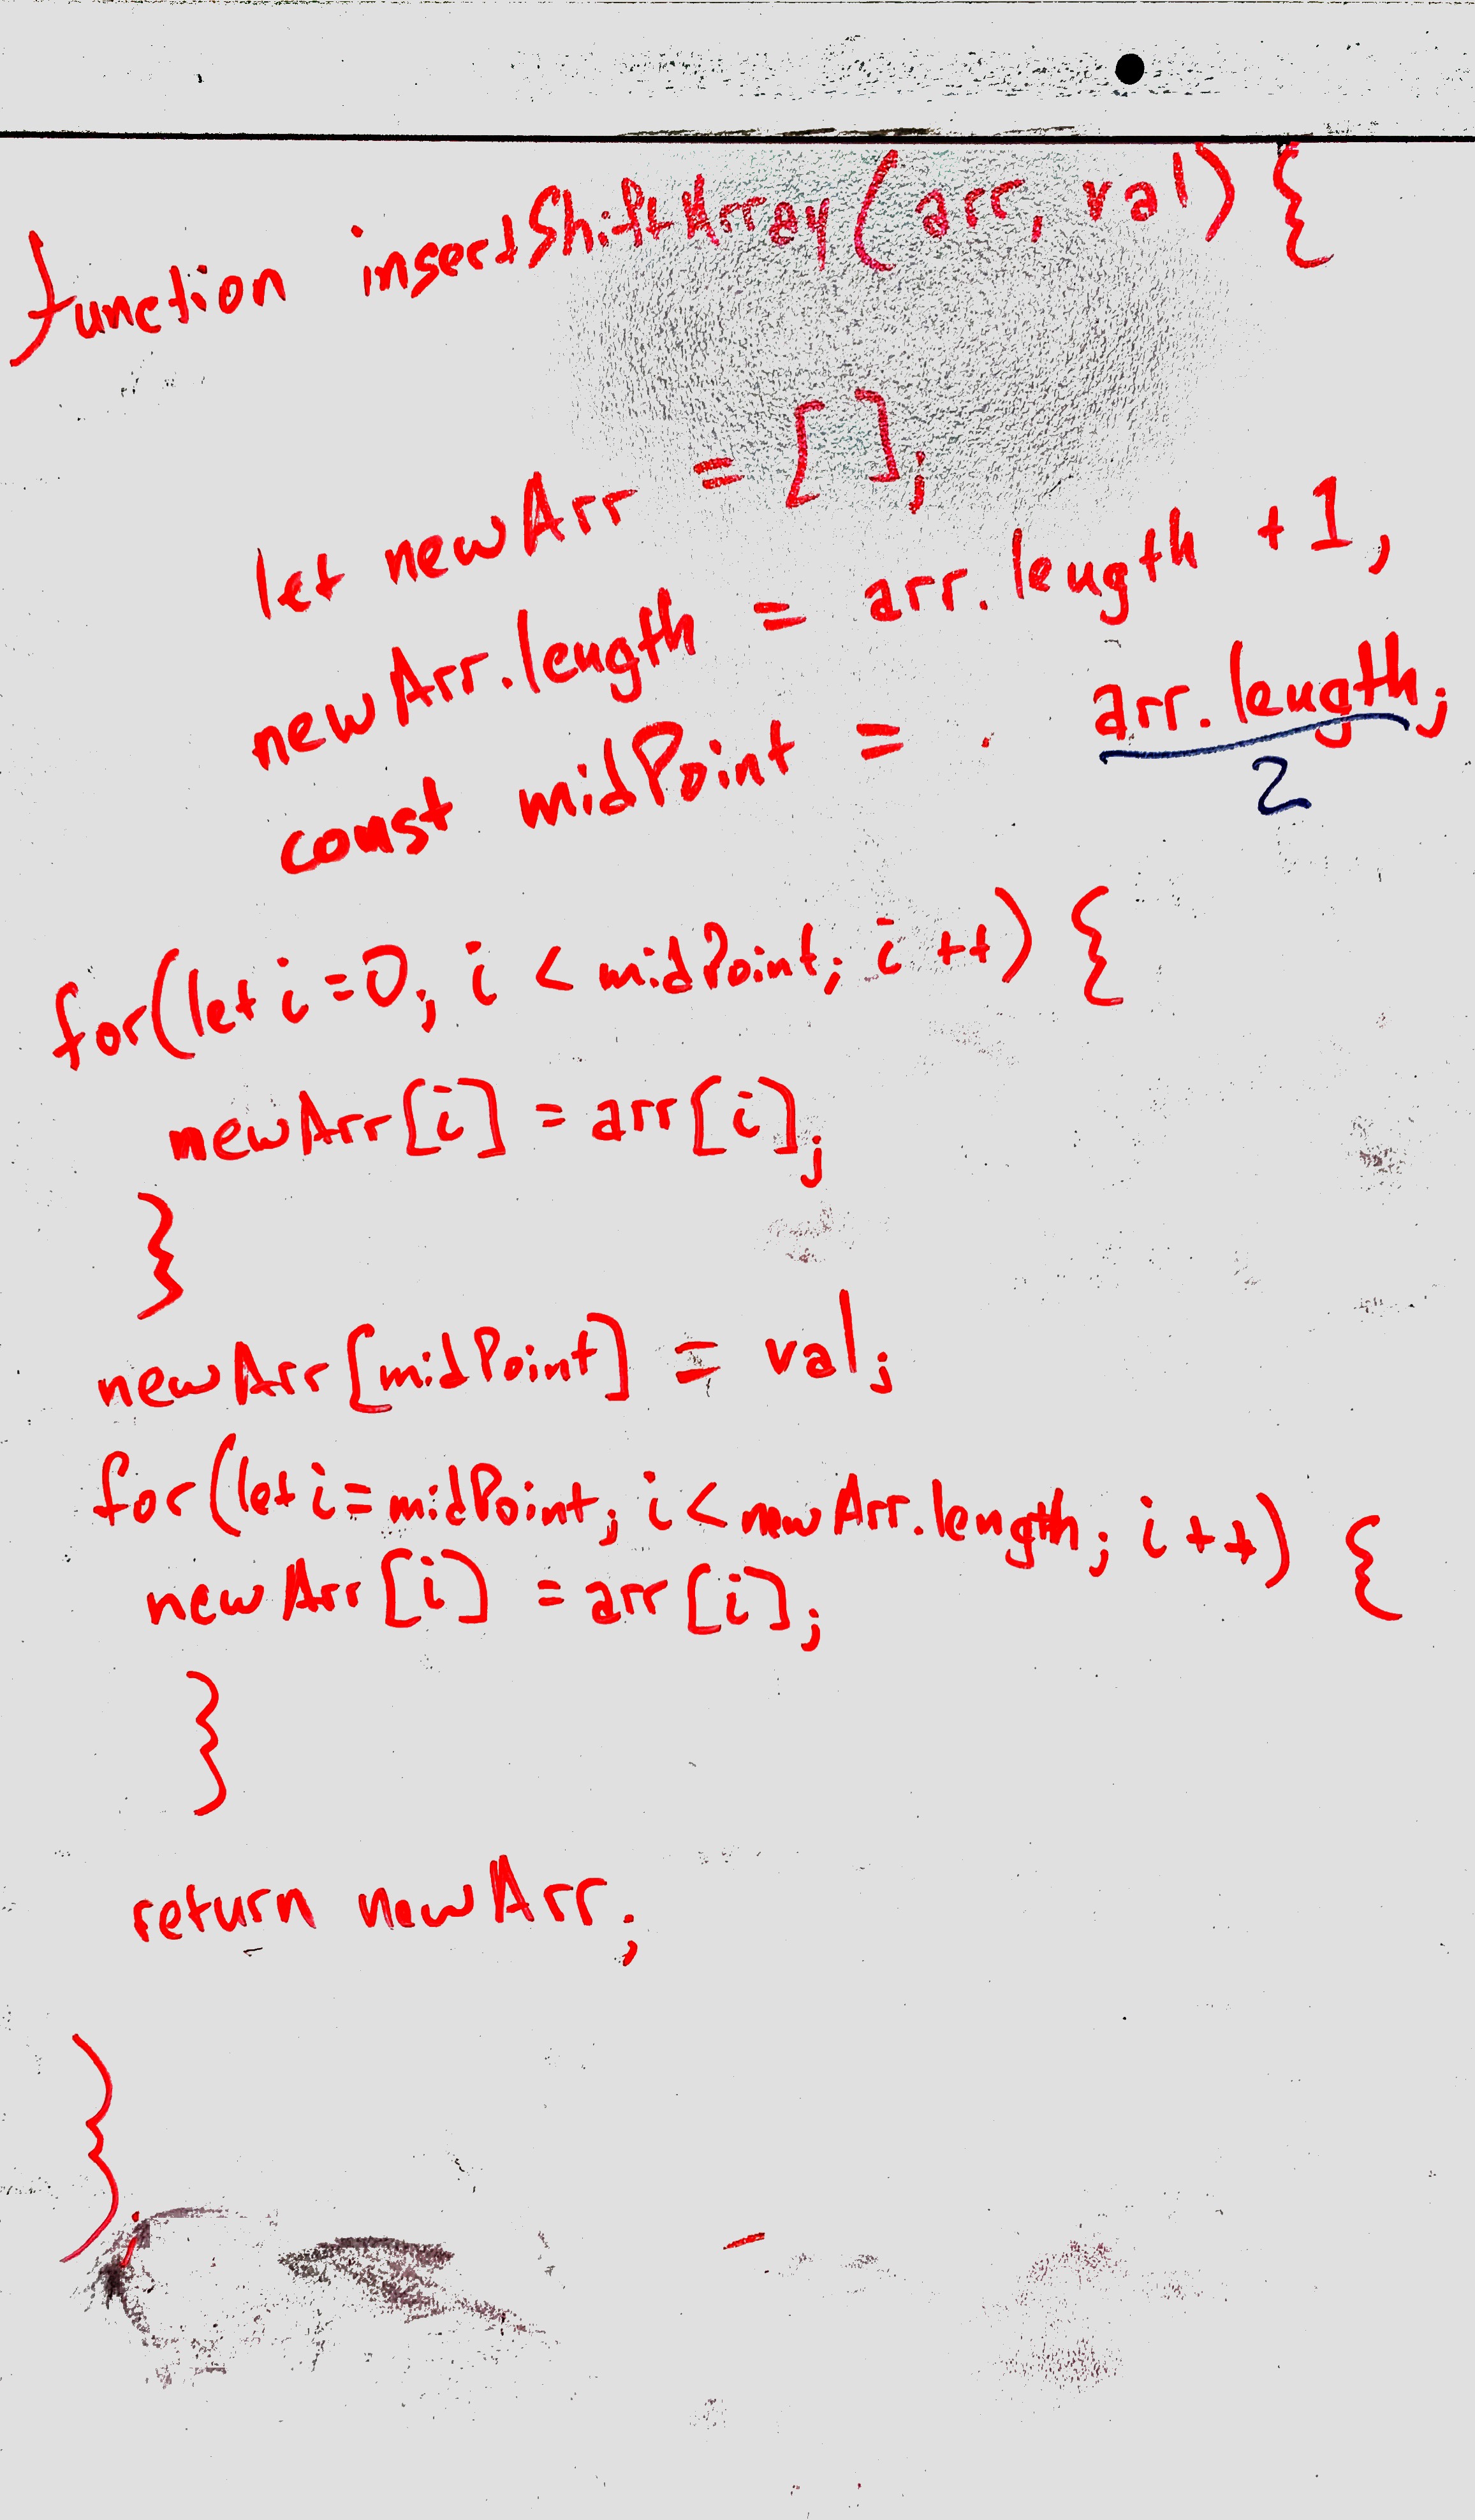 function insertShiftArray(arr, val) {
let newArr = [];
newArr.length = arr.length +1,
const midPoint = arr.length;
2
for(let i=0; i < midPoint; i++) {
newArr[i] = arr[i];
}
newArr[midPoint] = val;
for(let i=midPoint; i<newArr.length; i++) {
newArr[i] = arr[i];
}
return newArr;
};